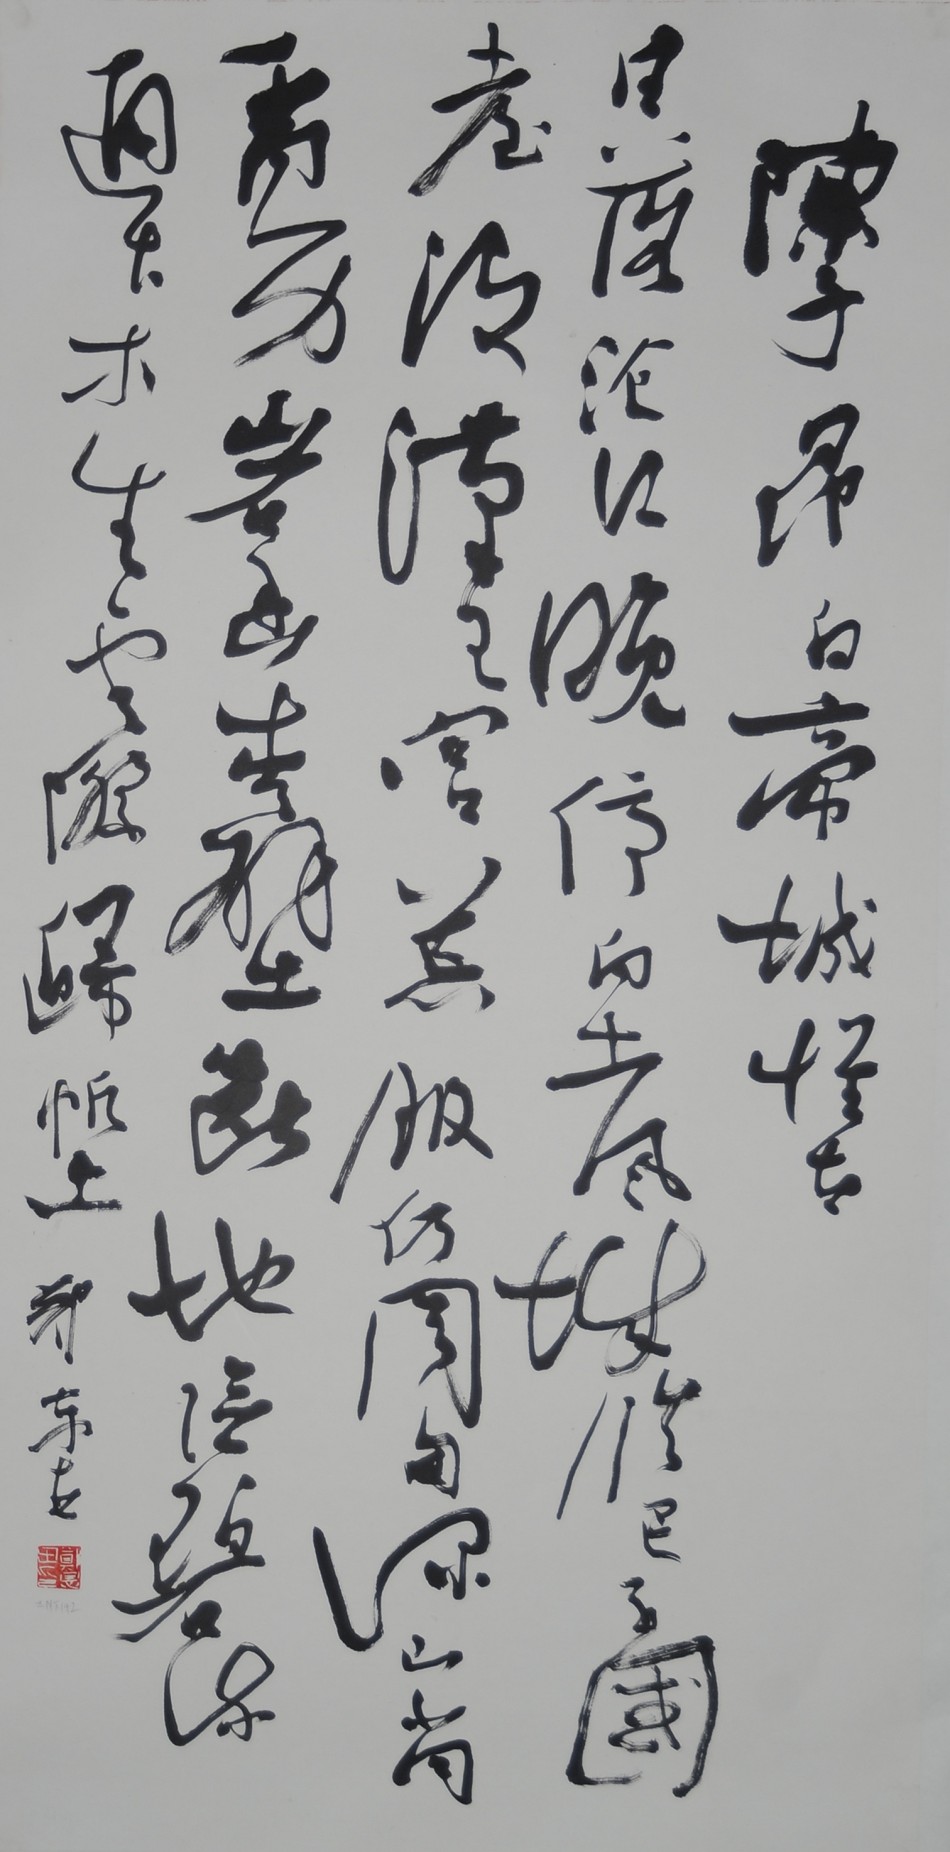 陳子昂白帝城懷古
日落滄江晚停問土風城臨巴子國
臺沒漢王宮荒服仍周甸深山尚
禹功巖懸青壁斷地險碧流
通古木生雲際歸帆出